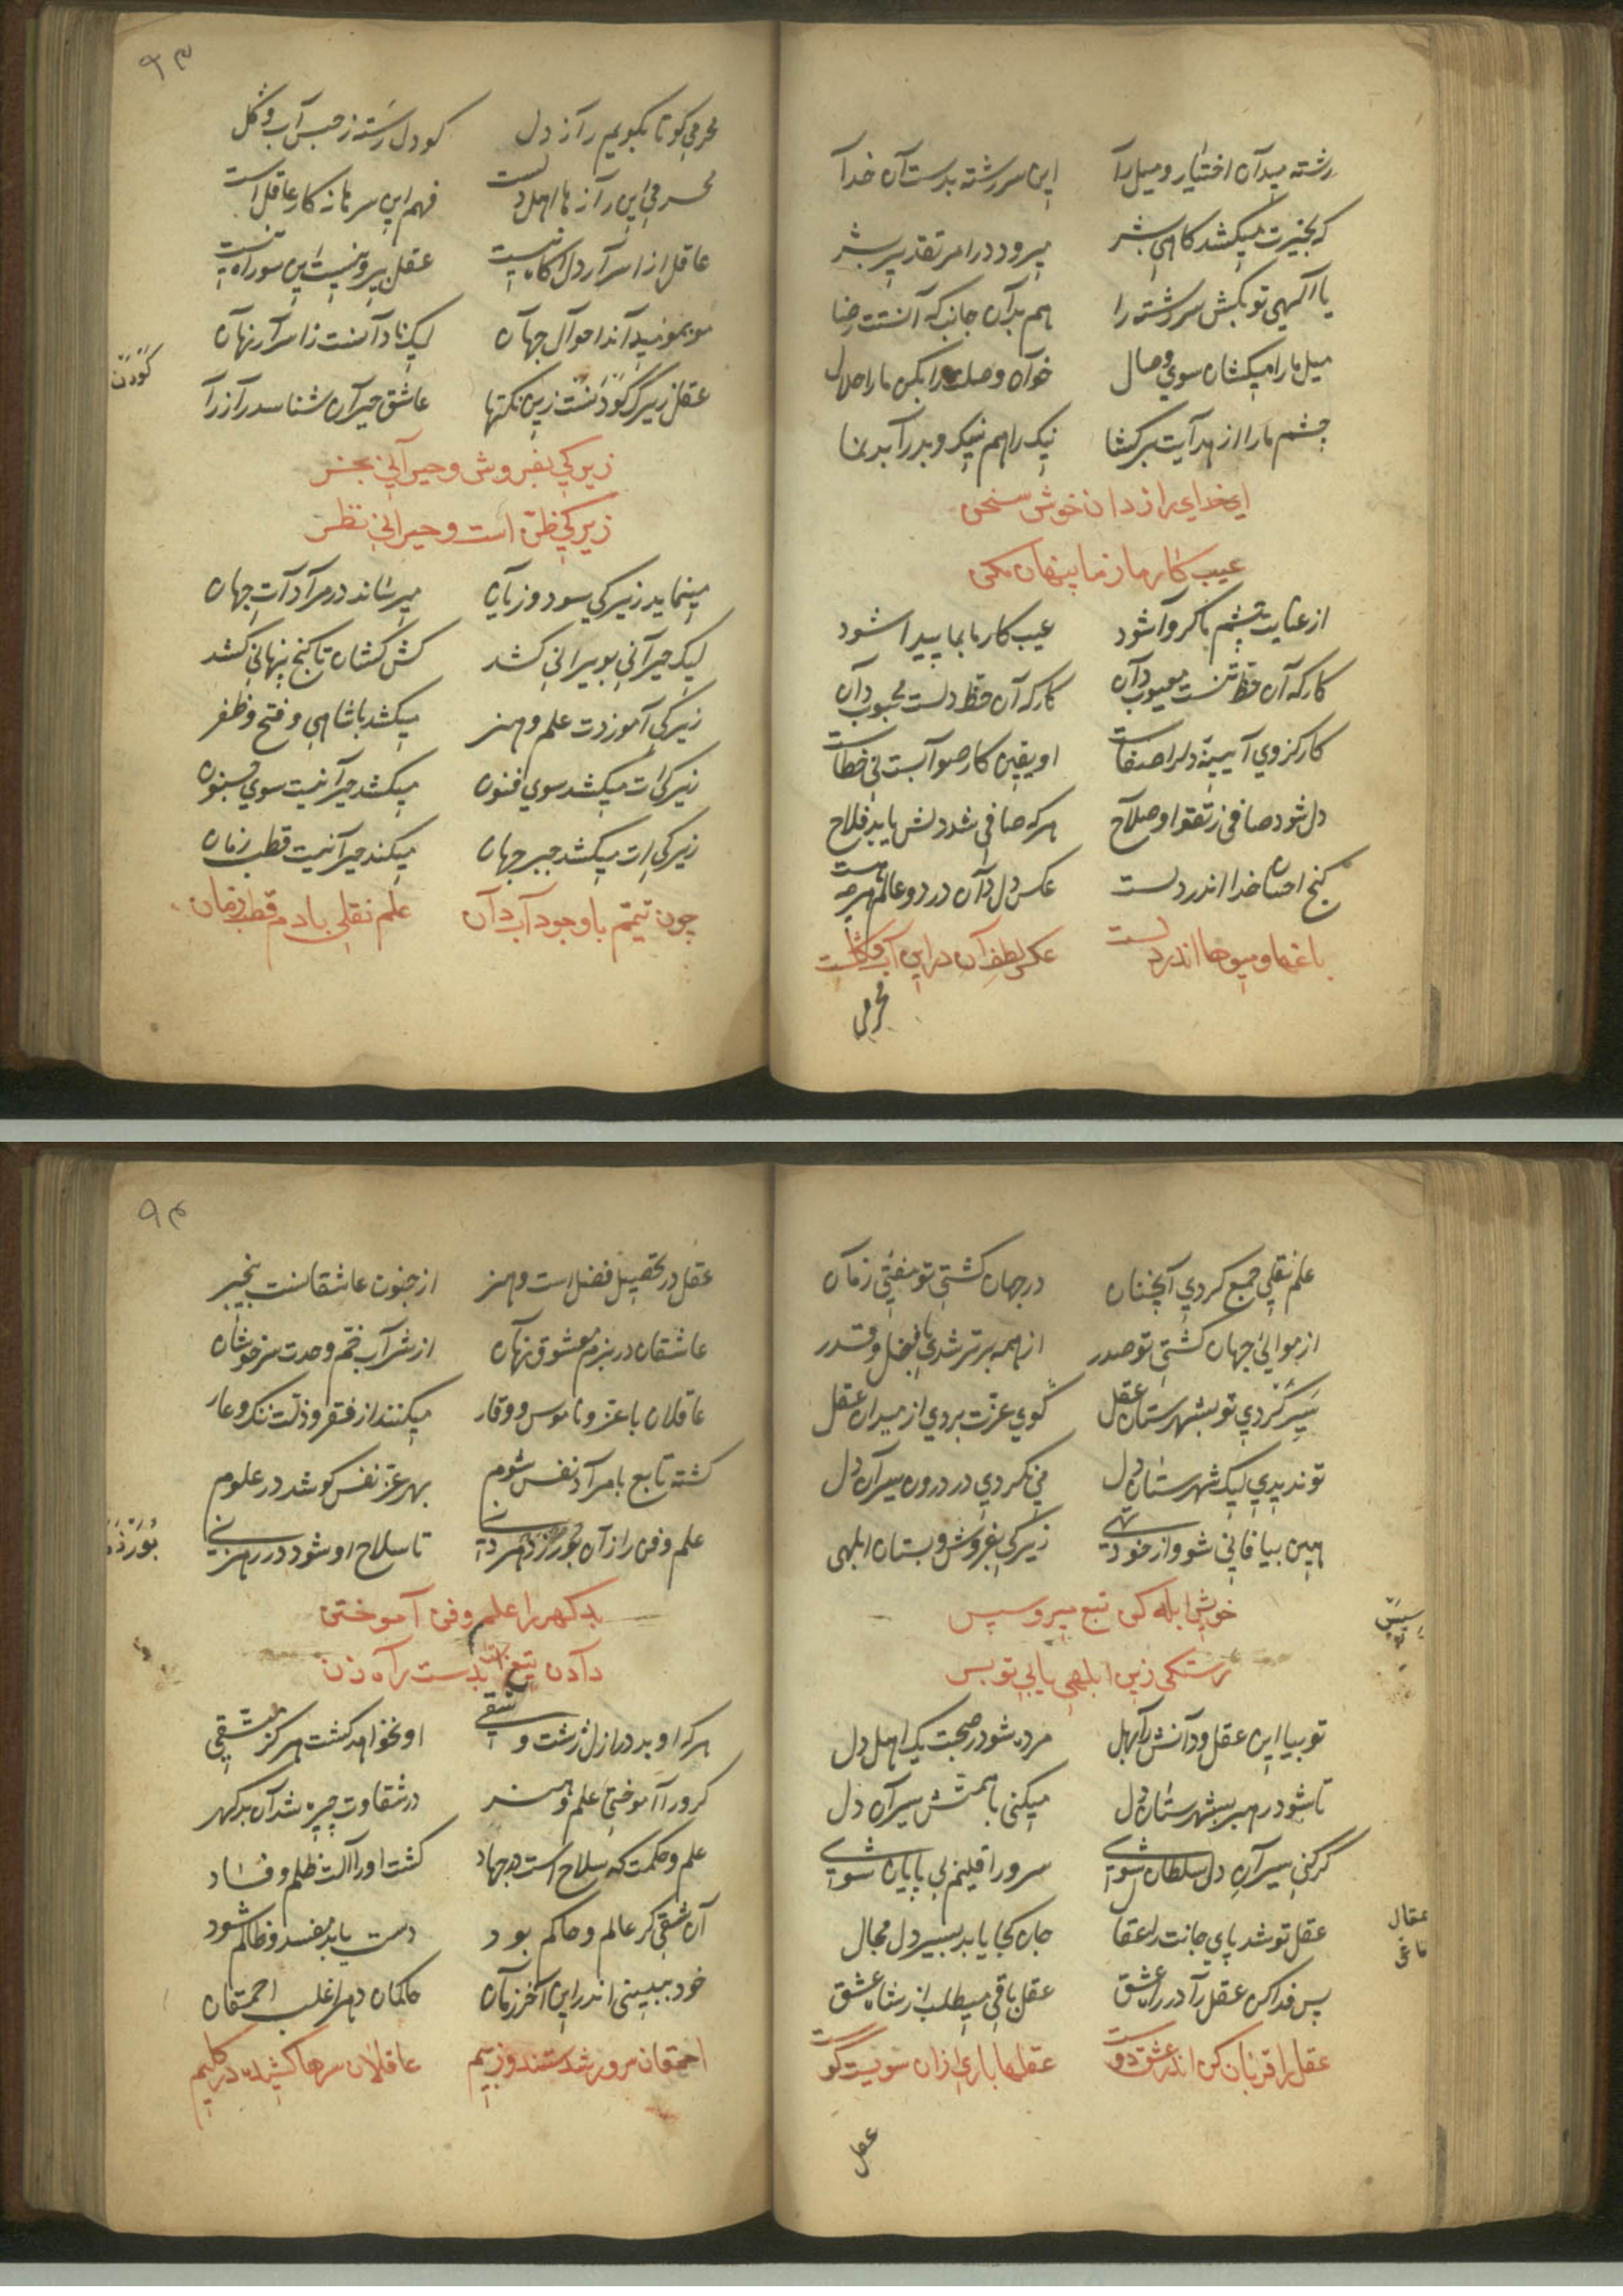 رشته میدان اختیار و میل را این سررشته بدست آن خدا
که بخیرت میکشد کاهی بشر میرود در امر تقدیر بشر
یا الهی تو بکش سررشته را هم بدان جانب که آنستت رضا
میل ما را میکشان سوی وصال خوان وصلت را بکن ما را حلال
چشم ما را از هدایت برکشا نیک را هم نیک و بد را بد نما
ای خدای رازدان خوش سخن
عیب کار ما ز ما پنهان مکن
از عنایت چشم ما کر وا شود عیب کار ما بما پیدا شود
کار که آن حظ تنست معیوب دان کار که آن حظ دلست محبوب دان
کار کز وی آیینهٔ دلرا صفاست او یقین کار صوابست بی خطاست
دل شود صافی ز تقوا و صلاح هر که صافی شد دلش یابد فلاح
کنج احسان خدا اندر دلست عکس دل دان در دو عالم هرچه هست
باغها و میوها اندر دلست عکس لطف آن در این آب و کلست
محرمی
۹۳
محرمی کو تا بکویم راز دل کو دل رسته ز حبس آب و کل
محرمی این رازها اهل دلست فهم این سرها نه کار عاقلست
عاقل از اسرار دل آکاه نیست عقل پیرو نیست این سو راه نیست
موبمو میداند احوال جهان لیک نادانست ز اسرار نهان
عقل زیرک کودنست زین نکتها عاشق حیران شناسد راز را
کودن
زیرکی بفروش و حیرانی بخر
زیرکی ظن است و حیرانی نظر
مینماید زیرکی سود و زیان میرساند در مرادات جهان
لیک حیرانی بویرانی کشد کش کشان تا کنج پنهانی کشد
زیرکی آموزدت علم و هنر میکشد با شاهی و فتح و ظفر
زیرکی ات میکشد سوی فنون میکشد حیرانیت سوی جنون
زیرکی ات میکشد جبر جهان میکند حیرانیت قطب زمان
چون تیمم با وجود آب دان علم نقلی با دم قطب زمان
علم نقلی جمع کردی آنچنان در جهان کشتی تو مفتی زمان
از موالی جهان کشتی تو صدر از همه برتر شدی با فضل و قدر
سیر کردی تو بشهرستان عقل کوی عزت بردی از میدان عقل
تو ندیدی لیک شهرستان دل می نکردی در درون سیران دل
هین بیا فانی شو و از خود تهی زیرکی بفروش و بستان ابلهی
خویش ابله کن تبع میرو سپس
سپس
رستکی زین ابلهی یابی تو بس
تو بیا این عقل و دانش را بهل مرده شو در صحبت یک اهل دل
تا شود رهبر بشهرستان دل میکنی با همتش سیران دل
کر کنی سیران دل سلطان شوی سرور اقلیم بی پایان شوی
عقل تو شد پای جانت را عقال جان کجا یابد بسیر دل مجال
عقال
پس فدا کن عقل را در راه عشق عقل باقی میطلب از شاه عشق
عقل را قربان کن اندر عشق دوست عقلها باری ازان سویست کوست
عقل
۹۴
عقل در تحصیل فضل است و هنر از جنون عاشقانست بیخبر
عاشقان در بزم معشوق نهان از شراب خم وحدت سرخوشان
عاقلان با عز و ناموس و وقار میکنند از فقر و ذلت ننک و عار
کشته تابع با مراد نفس شوم بهر عز نفس کوشد در علوم
علم و فن را زان بورزد هر دنی تا سلاح او شود در رهزنی
بدکهر را علم و فن آموختن
دادن تیغ است بدست راه زن
هر که او بد در ازل زشت و شقی او نخواهد کشت هرکز متقی
کر ورا آموختی علم و هنر در شقاوت چیره شد آن بدکهر
علم و حکمت که سلاح است در جهاد کشت او را آلت ظلم و فساد
آن شقی کر عالم و حاکم بود دست یابد مفسد و ظالم شود
خود ببینی اندر این آخر زمان حاکمان دهر اغلب احمقان
احمقان سرور شدستند و ز بیم عاقلان سرها کشیده در کلیم